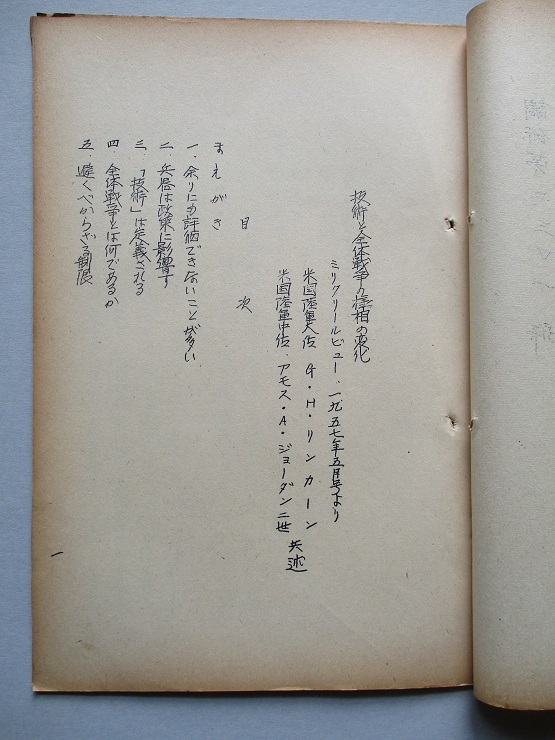 技術と全体戦争の様相の変化
ミリタリールビュー、一九五七年五月号より
米国陸軍大佐 G・H・リンカーン
米国陸軍中佐、アモス・A・ジョーダン二世 共述
目次
まえがき
一、余りにも評価できないことが多い
二、兵器は政策に影響す
三、「技術」は定義される
四、全体戦争とは何であるか
五、避くべからざる制限
一